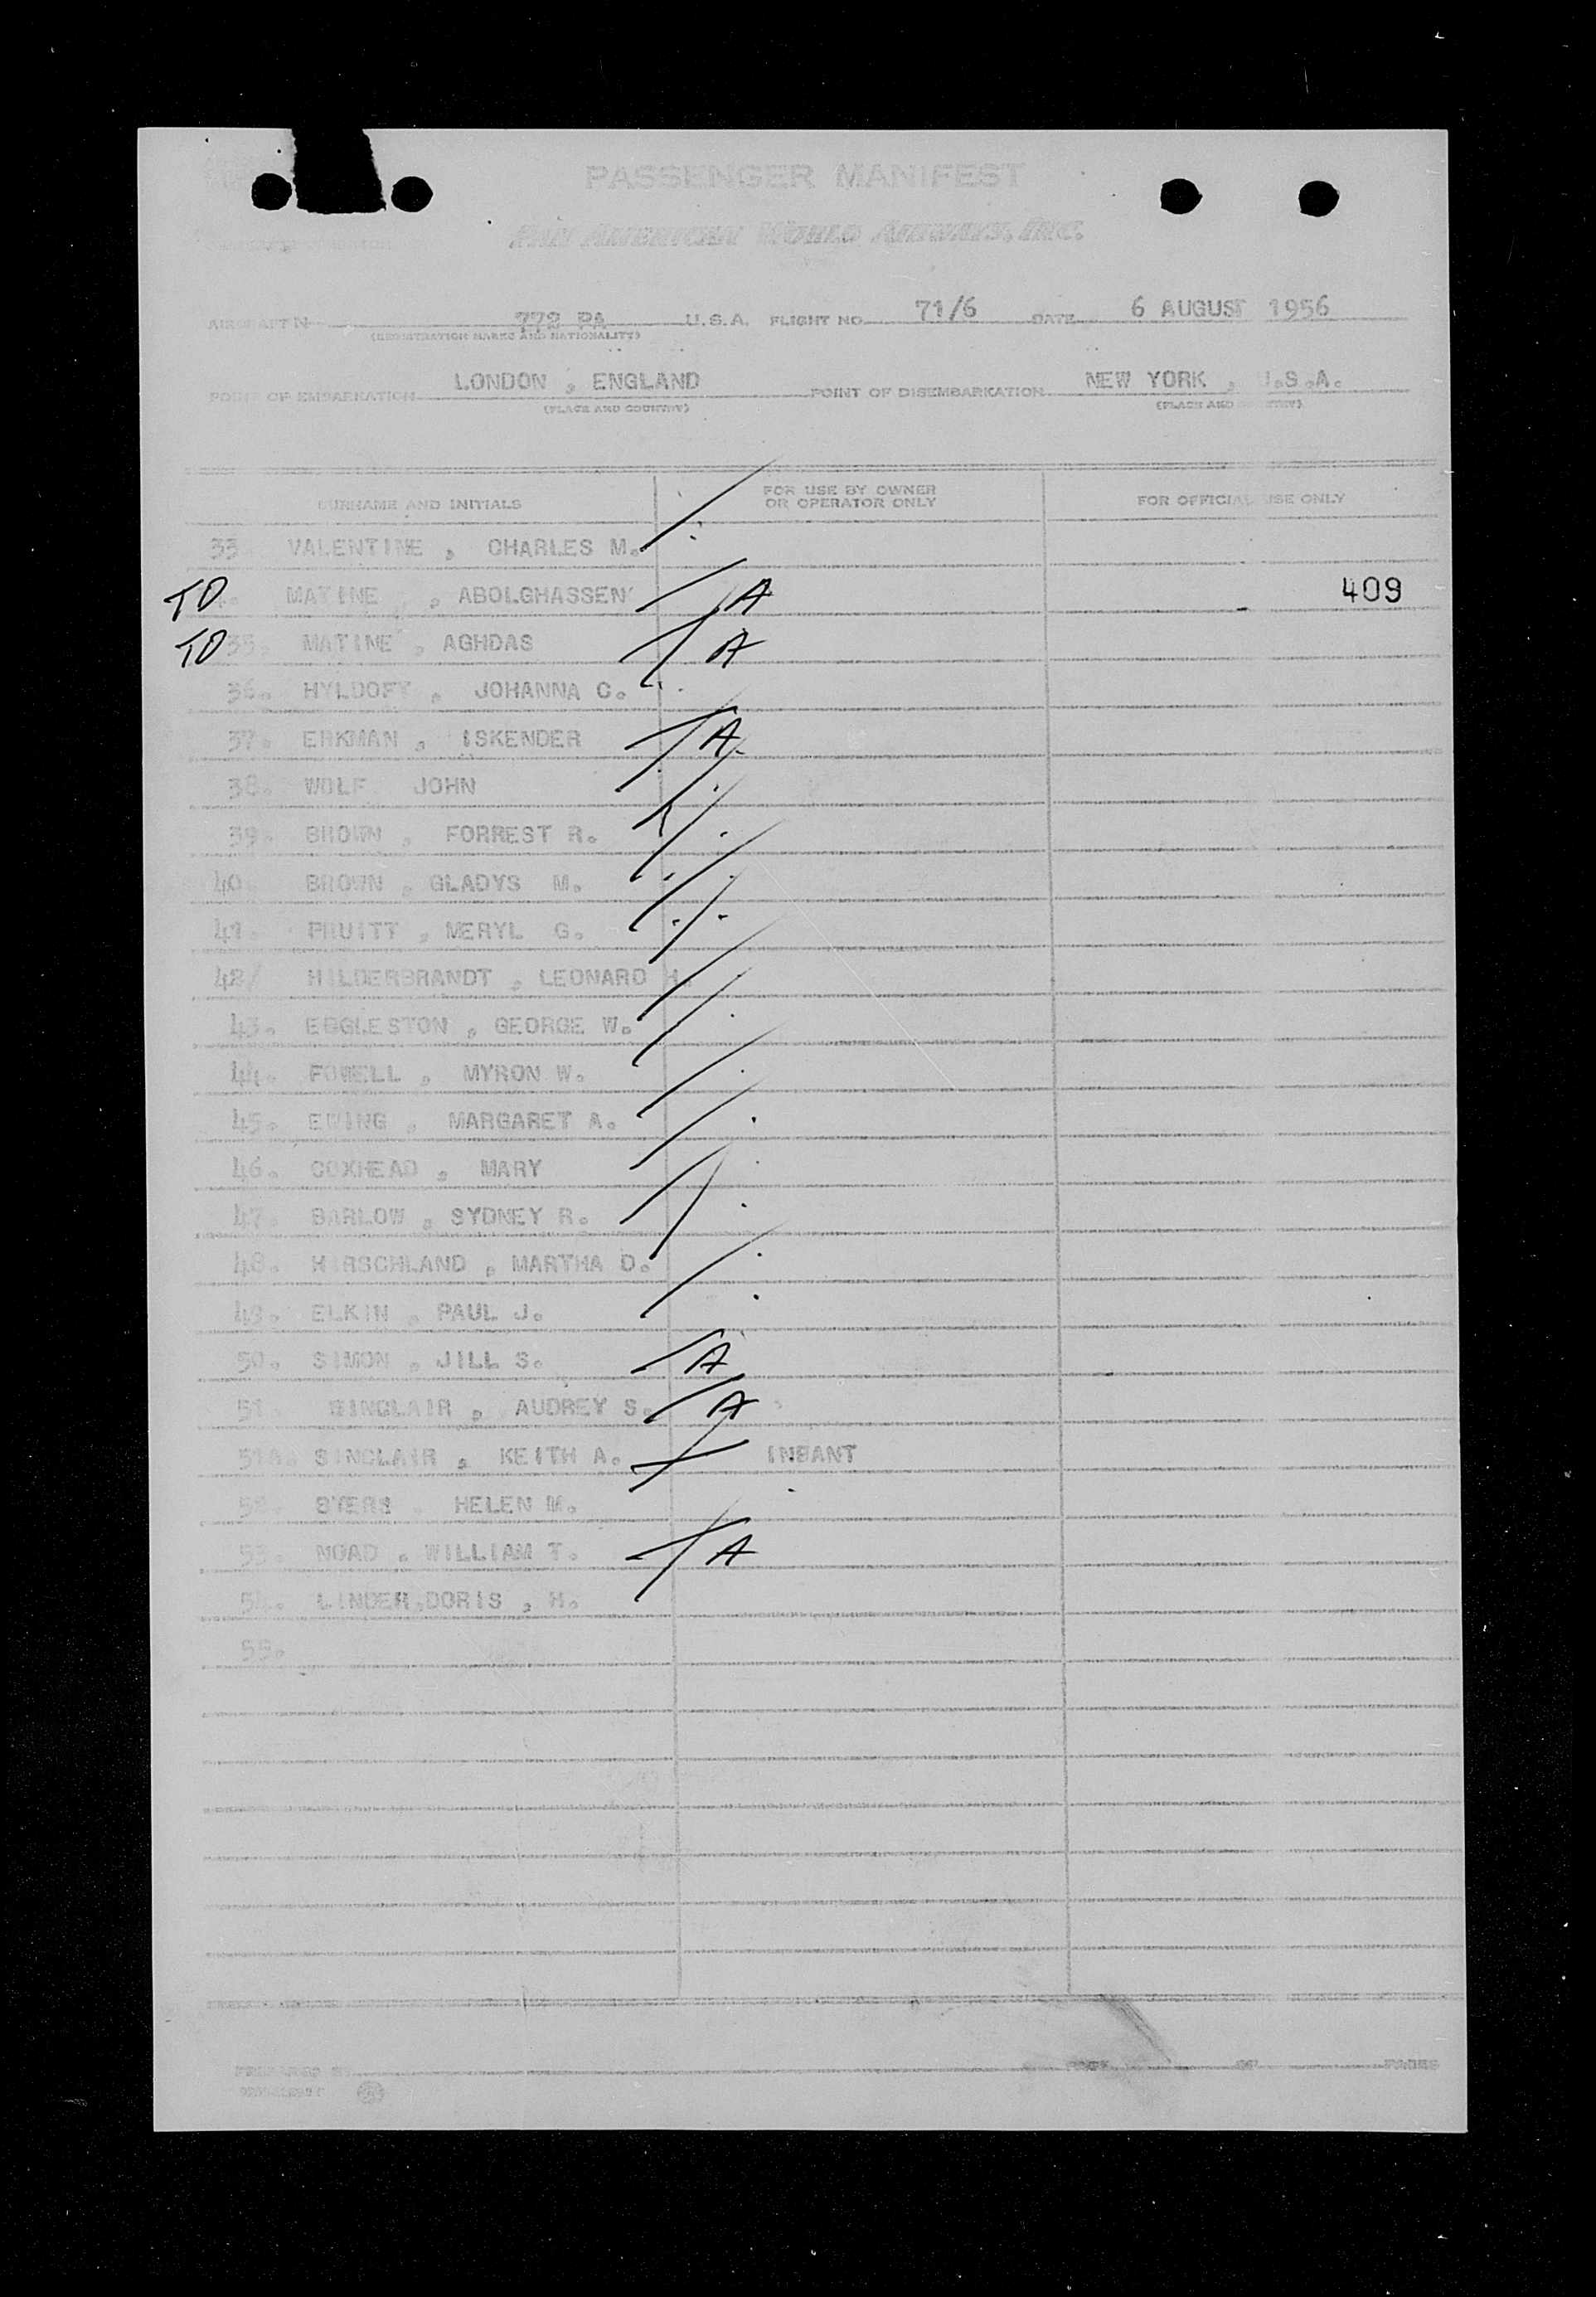 PASSENGER MANIFEST
PAN AMERICAN WORLD AIRWAYS, INC.
AIRCRAFT N 772 PA U.S.A. FLIGHT NO. 71/6 DATE 6 AUGUST 1956
(REGISTRATION MARKS AND NATIONALITY)
POINT OF EMBARKATION LONDON , ENGLAND POINT OF DISEMBARKATION NEW YORK , U.S.A.
(PLACE AND COUNTRY) (PLACE AND COUNTRY)
SURNAME AND INITIALS FOR USE BY OWNER OR OPERATOR ONLY FOR OFFICIAL USE ONLY
33 VALENTINE , CHARLES M. /
TO MATINE , ABOLGHASSEN / A 409
TO 35. MATINE , AGHDAS / A
36. HYLDOFT , JOHANNA C. /
37. ERKMAN , ISKENDER / A
38. WOLF JOHN /
39. BROWN , FORREST R. /
40 BROWN , GLADYS M. /
41. PRUITT , MERYL G. /
42/ HILDERBRANDT , LEONARD H. /
43. EGGLESTON , GEORGE W. /
44. POWELL , MYRON W. /
45. EWING , MARGARET A. /
46. COXHEAD , MARY /
47. BARLOW , SYDNEY R. /
48. HIRSCHLAND , MARTHA D. /
49. ELKIN , PAUL J. /
50. SIMON , JILL S. / A
51. SINCLAIR , AUDREY S. / A
51A. SINCLAIR , KEITH A. / INFANT
52. BYERS , HELEN M. /
53. NOAD , WILLIAM T. / A
54. LINDER,DORIS , H. /
55.
PAGE OF PAGES